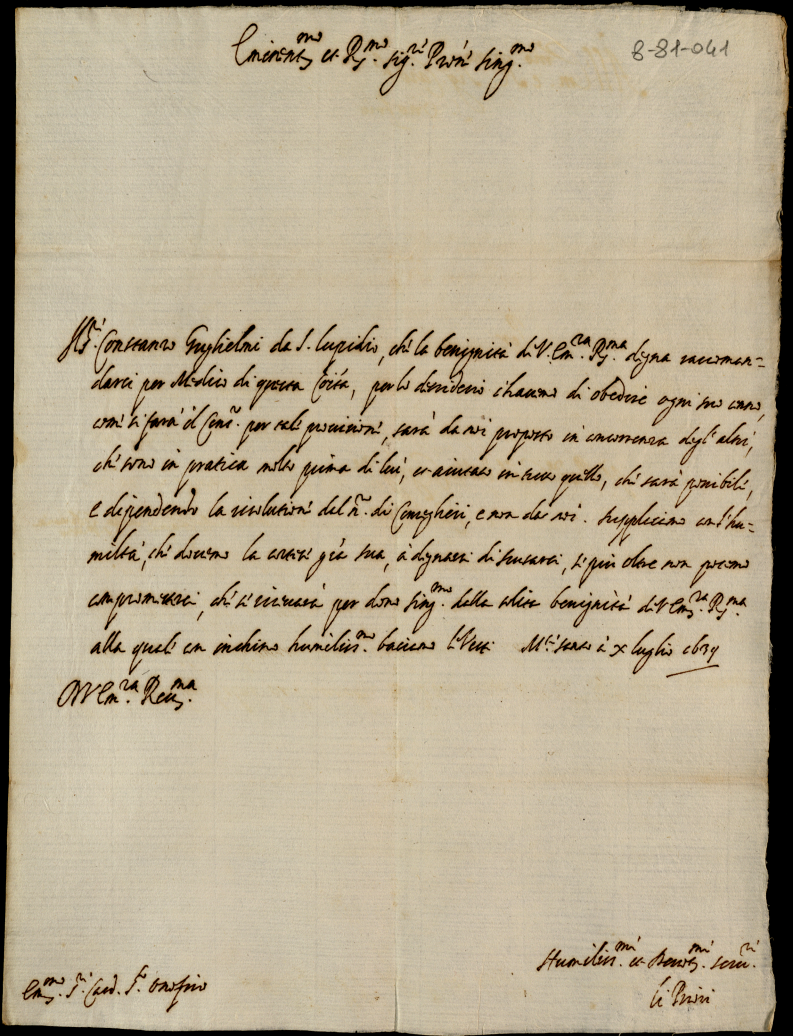 Eminent.mo et R.mo Sig.re Pron̄e Sing.mo
8-81-041
Il S.r Constanzo Guglielmi da S. Lupidio, che la benignità di V. Em.za R.ma degna raccoman=
darci per Medico di questa Co͠ita, per lo desiderio c'havemo di obedire ogni suo cenno,
come si farà il Cons.o per tale provisione, sarà da noi proposto in concorrenza degl'altri,
che sono in pratica molto prima di lui, et aiutato in tutto quello, che sarà possibile,
e dipendendo la risolutione dal n.o di Conseglieri, e non da noi. supplicamo con l'hu=
miltà, che dovemo la sua, à degnarsi di scusarci, se più oltre non potemo
compromettersi, che si riceverà per dono sing.mo della solita benignità di V. Em.za R.ma
alla quale con inchino humiliss.mo baciamo le Vesti. M.te santo à x luglio 1639
Di V. Em.za Rev.ma
Humiliss.mi et Devot.mi serv.ri
li Priori
Em.mo S.r Card. S.to Onofrio